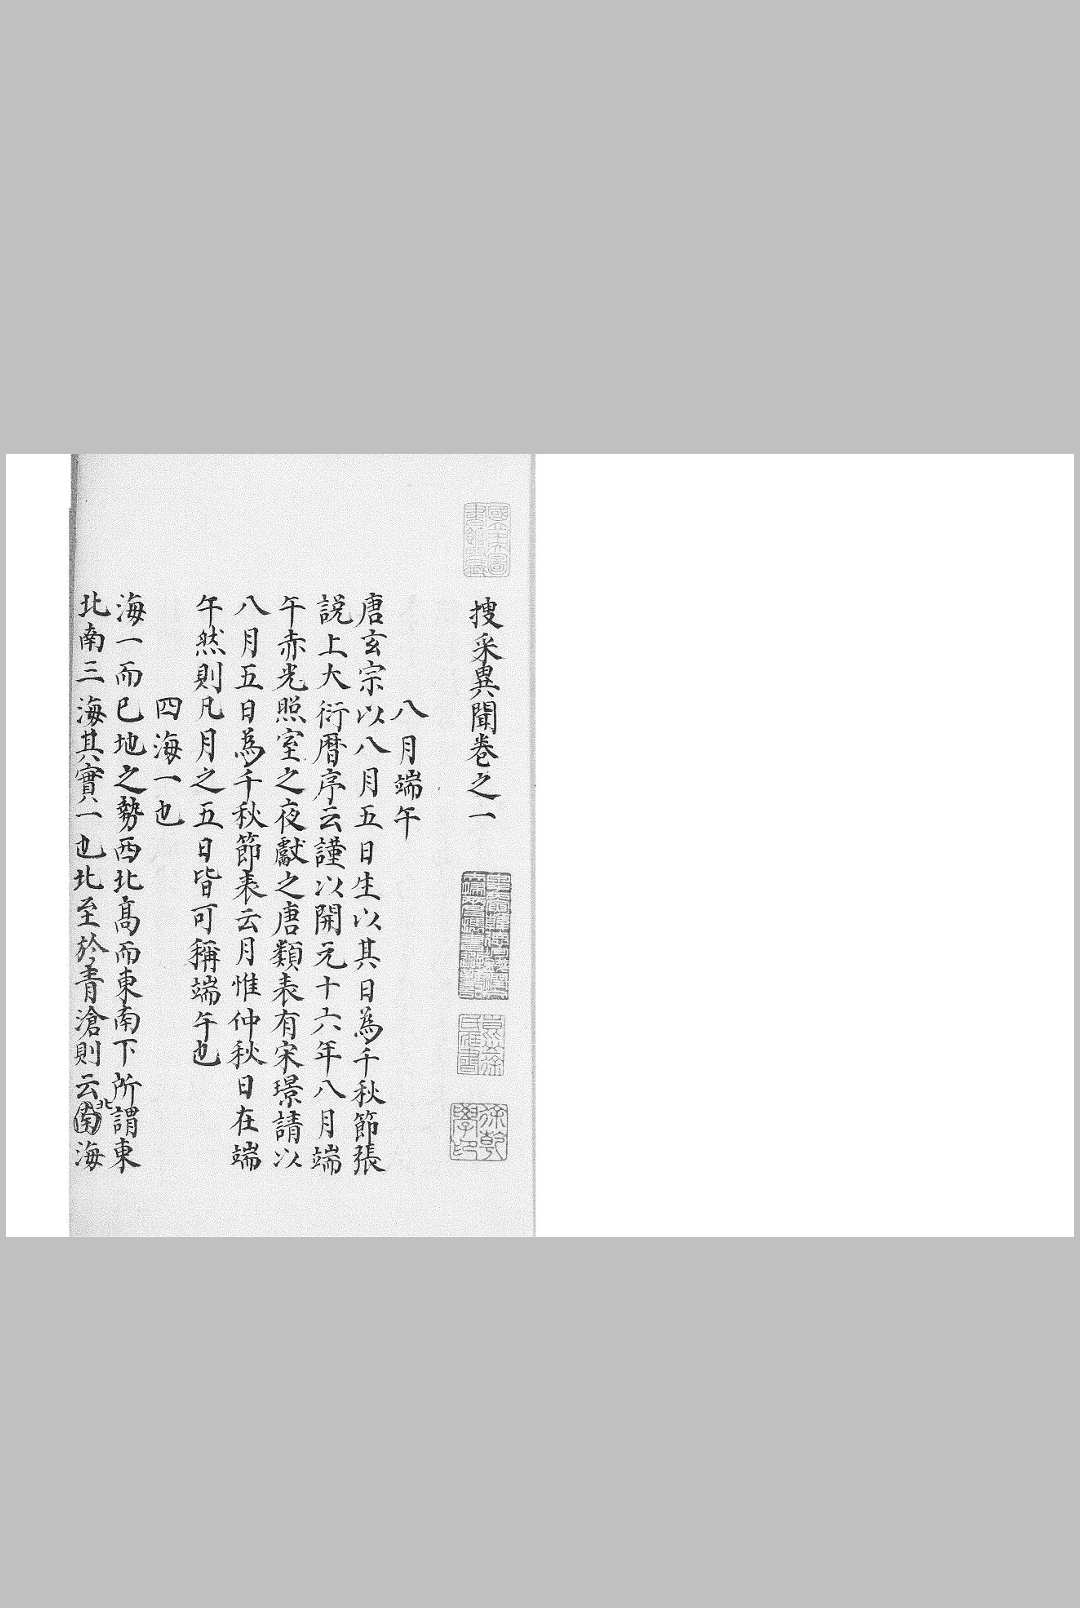 搜采異聞卷之一
八月端午
唐玄宗以八月五日生以其日為千秋節張
說上大衍曆序云謹以開元十六年八月端
午赤光照室之夜獻之唐類表有宋璟請以
八月五日為千秋節表云月惟仲秋日在端
午然則凡月之五日皆可稱端午也
四海一也
海一而已地之勢西北高而東南下所謂東
北南三海其實一也北至於青滄則云南北海
徐乾學印